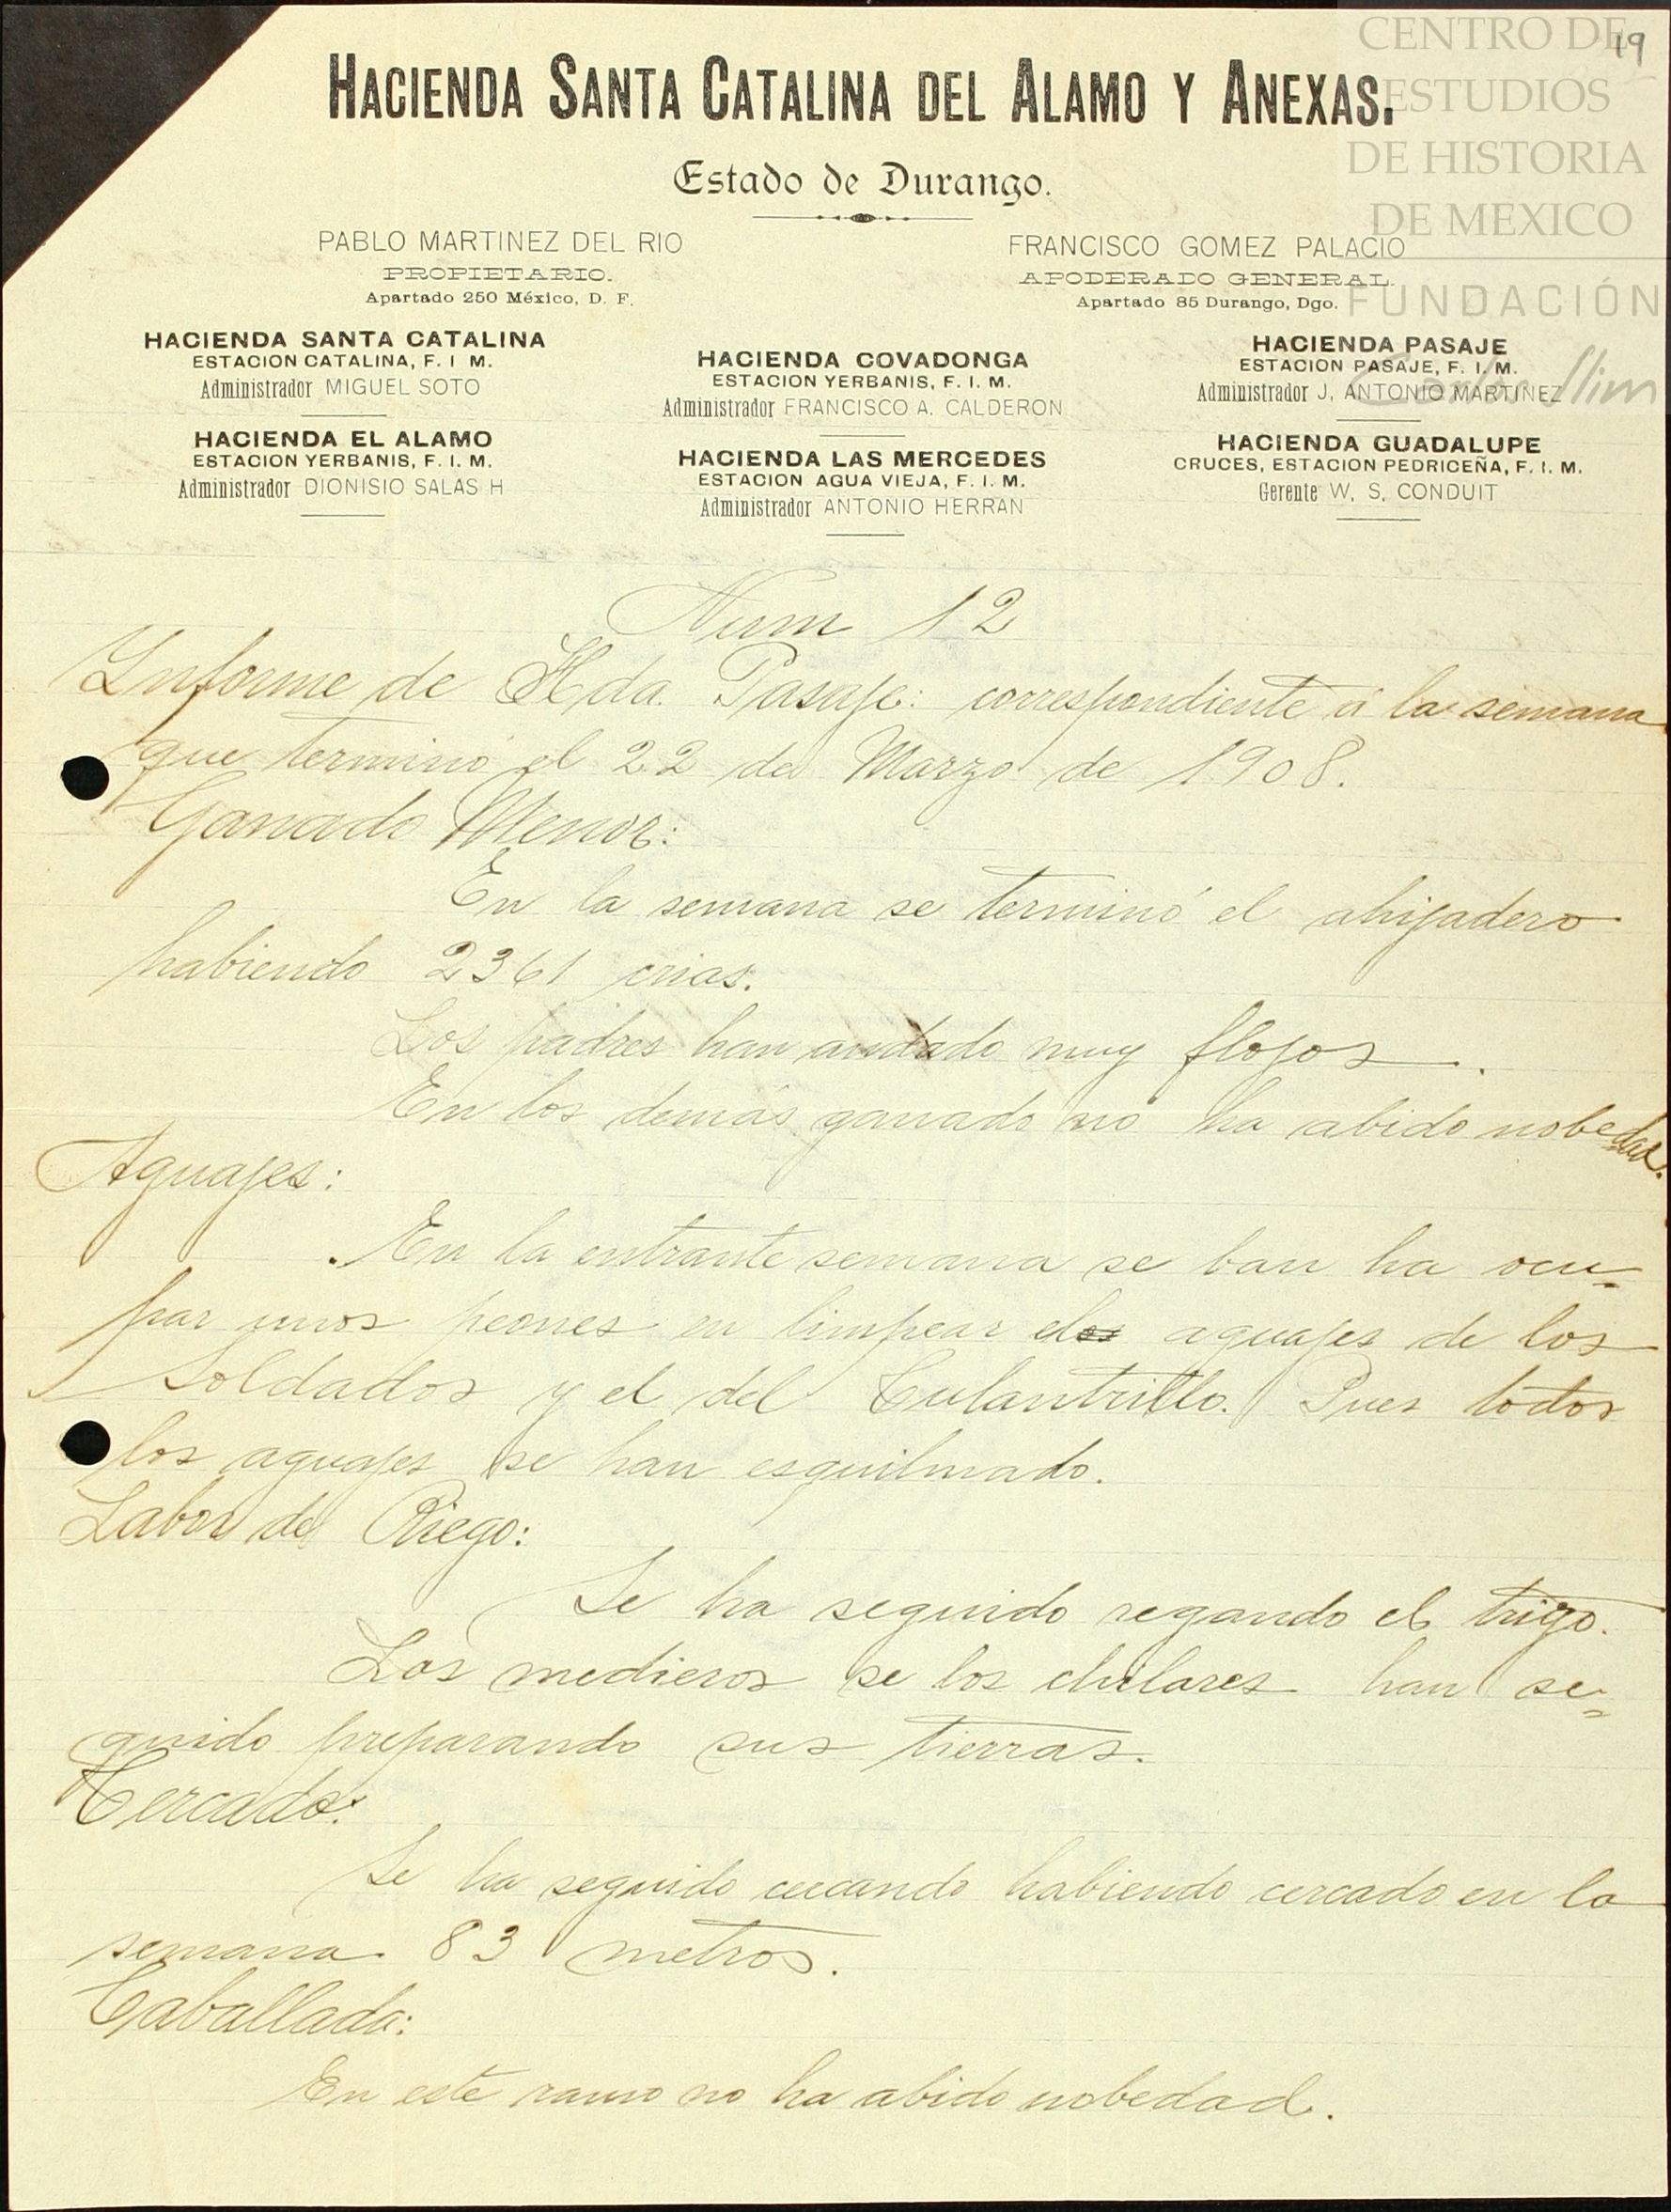 CENTRO DE
ESTUDIOS
DE HISTORIA
DE MEXICO
FUNDACIÓN
Carlos Slim
19
HACIENDA SANTA CATALINA DEL ALAMO Y ANEXAS.
Estado de Durango.
PABLO MARTINEZ DEL RIO
PROPIETARIO.
Apartado 250 México, D. F.
FRANCISCO GOMEZ PALACIO
APODERADO GENERAL.
Apartado 85 Durango, Dgo.
HACIENDA SANTA CATALINA
ESTACION CATALINA, F. I M.
Administrador MIGUEL SOTO
HACIENDA COVADONGA
ESTACION YERBANIS, F. I. M.
Administrador FRANCISCO A. CALDERON
HACIENDA PASAJE
ESTACION PASAJE, F. I. M.
Administrador J, ANTONIO MARTINEZ
HACIENDA EL ALAMO
ESTACION YERBANIS, F. I. M.
Administrador DIONISIO SALAS H
HACIENDA LAS MERCEDES
ESTACION AGUA VIEJA, F. I. M.
Administrador ANTONIO HERRAN
HACIENDA GUADALUPE
CRUCES, ESTACION PEDRICEÑA, F. I. M.
Gerente W. S. CONDUIT
Num 12
Informe de Hda. Pasaje: correspondiente á la semana
que terminó el 22 de Marzo de 1908.
Ganado Menor:
En la semana se terminó el ahijadero
habiendo 2361 crias.
Los padres han andado muy flojos.
En los demás ganado no ha abido nobedad.
Aguajes:
En la entrante semana se ban ha ocu=
par unos peones en limpear elos aguajes de los
Soldados y el del Culantrillo. Pues todos
los aguajes se han esquilmado.
Labor de Riego:
Se ha seguido regando el trigo.
Los medieros se los chilares han se=
guido preparando sus tierras.
Cercado:
Se ha seguido cercando habiendo cercado en la
semana 83 metros.
Caballada:
En este ramo no ha abido nobedad.